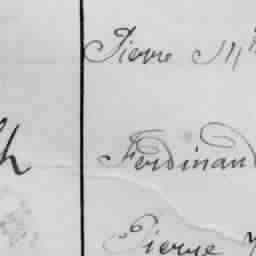 Pierre M
h
Ferdinand
Pierre